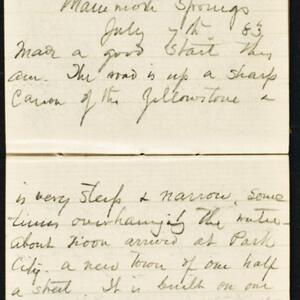 Mammoth Springs
July 7th 83
Made a good start this
am. The road is up a sharp
Canon of the Yellowstone &
is very steep & narrow. Some
times overhanging the water
About noon arrived at Park
City. a new town of one half
a street. It is built on one